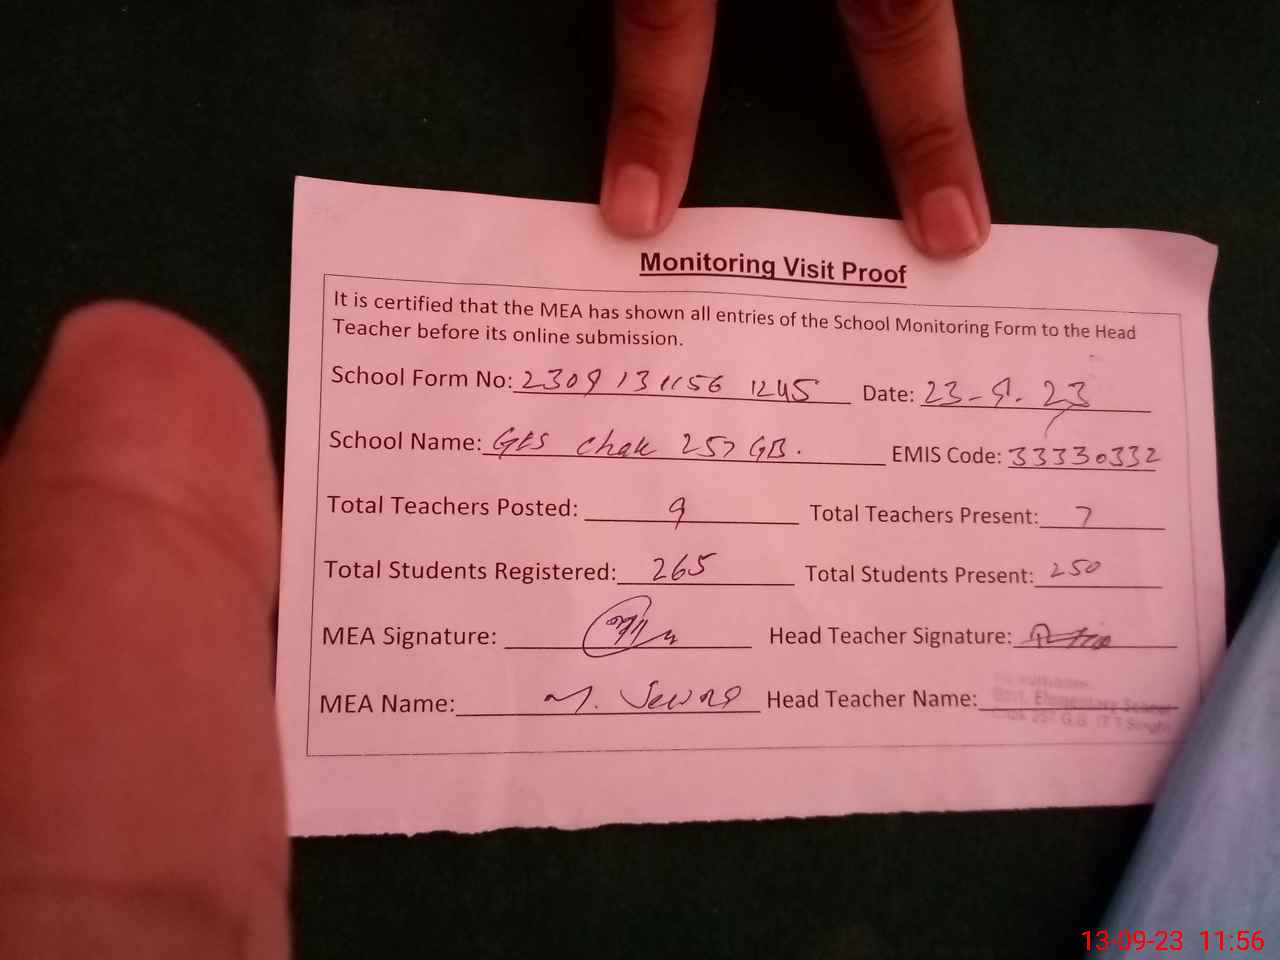 Monitoring Visit Proof
It is certified that the MEA has shown all entries of the School Monitoring Form to the Head
Teacher before its online submission.
School Form No: 2309131156 1245 Date: 23-9.23
School Name: GES Chak 257 GB. EMIS Code: 33330332
Total Teachers Posted: 9 Total Teachers Present: 7
Total Students Registered: 265 Total Students Present: 250
MEA Signature: Head Teacher Signature:
MEA Name: M. Head Teacher Name:
Govt. Elementary School
Chak 257 G.B. (T.T Singh)
13-09-23 11:56